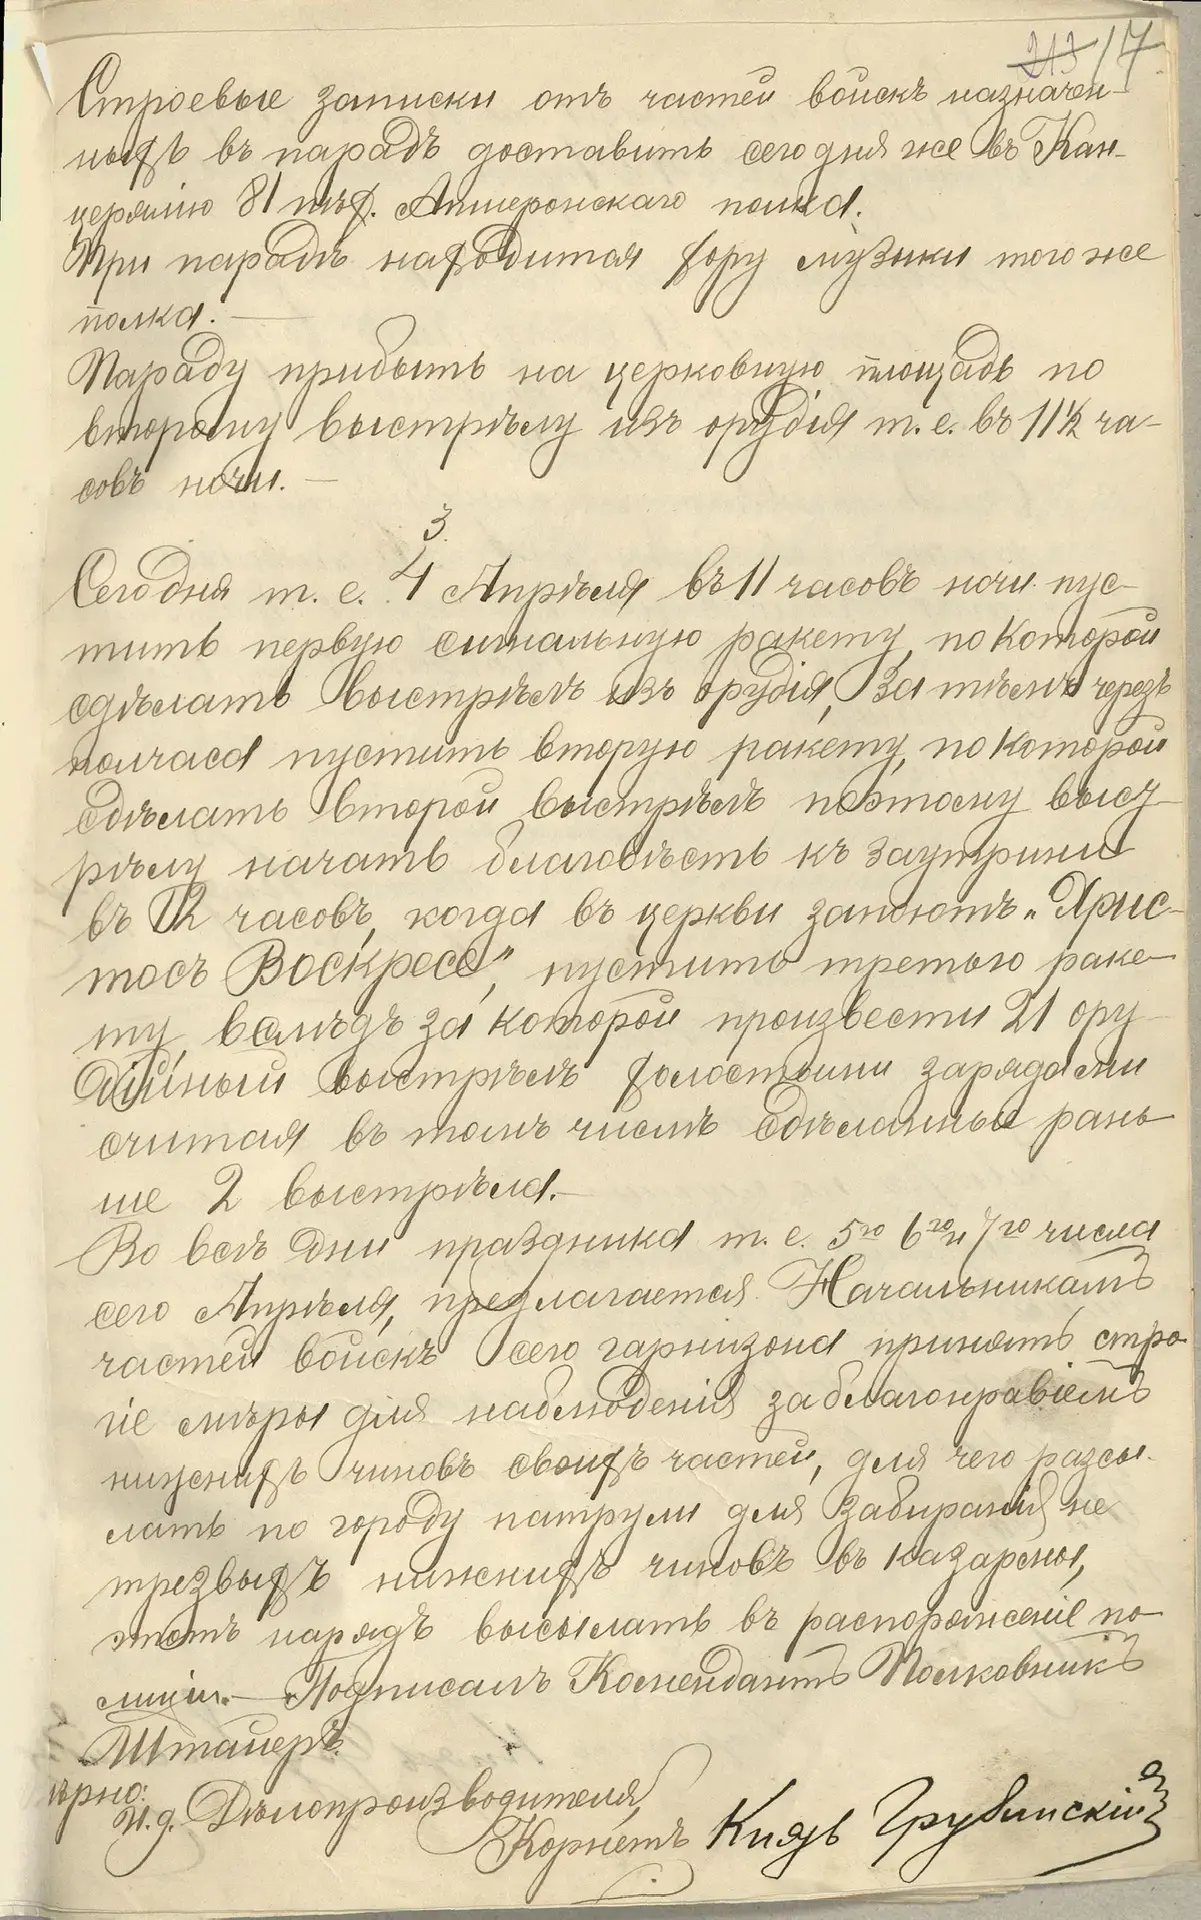 213 17
Строевые записки отъ частей войскъ назначен-
ныхъ въ парадъ доставить сегодня же въ Кан-
церярію 81 пѣх. Апшеронскаго полка.
При парадѣ находится хору музыки того же
полка. —
Параду прибыть на церковную площадь по
второму выстрѣлу изъ орудія т. е. въ 11½ ча-
совъ ночи. —
3.
Сегодня т. е. 4 Апрѣля въ 11 часовъ ночи пус-
тить первую сигнальную ракету, по которой
сдѣлать выстрѣлъ изъ орудія, за тѣмъ черезъ
полчаса пустить вторую ракету, по которой
сдѣлать второй выстрѣлъ поэтому выст-
рѣлу начать благовѣсть къ заутрини
въ 12 часовъ, когда въ церкви запоютъ „Хрис-
тосъ Воскресе", пустить третью раке-
ту, вслѣдъ за которой произвести 21 ору-
дійный выстрѣлъ холостыми зарядами
считая въ томъ числѣ сдѣланные рань-
ше 2 выстрѣла. —
Во всѣ дни праздника т. е. 5го 6го и 7го числа
сего Апрѣля, предлагается Начальникамъ
частей войскъ сего гарнизона принять стро-
гіе мѣры для наблюденія за благонравіемъ
нижнихъ чиновъ своихъ частей, для чего разсы-
лать по городу патрули для забиранія не
трезвыхъ нижнихъ чиновъ въ казармы,
этотъ нарядъ высылать въ распоряженіе по-
лиціи. — Подписалъ Комендантъ Полковникъ
Штаперъ.
ѣрно:
И. д. Дѣлопроизводителя,
Корнетъ Князь Грубинскій